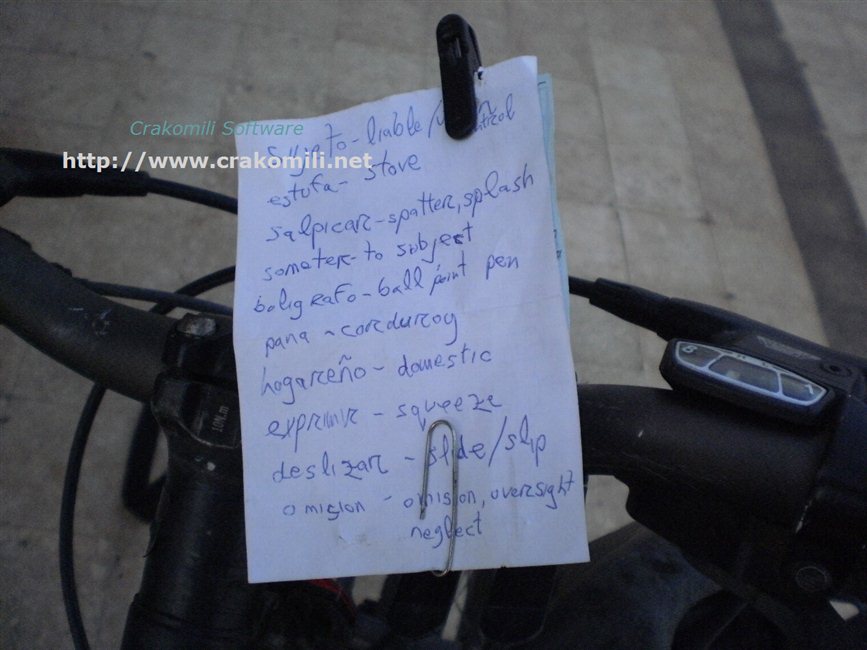 Crakomili Software
http://www.crakomili.net
sujeto - liable /
estufa - stove
salpicar - spatter, splash
someter - to subject
boligrafo - ball point pen
pana - corduroy
hogareño - domestic
exprimir - squeeze
deslizar - slide/slip
omision - omision, oversight
neglect
10N.m